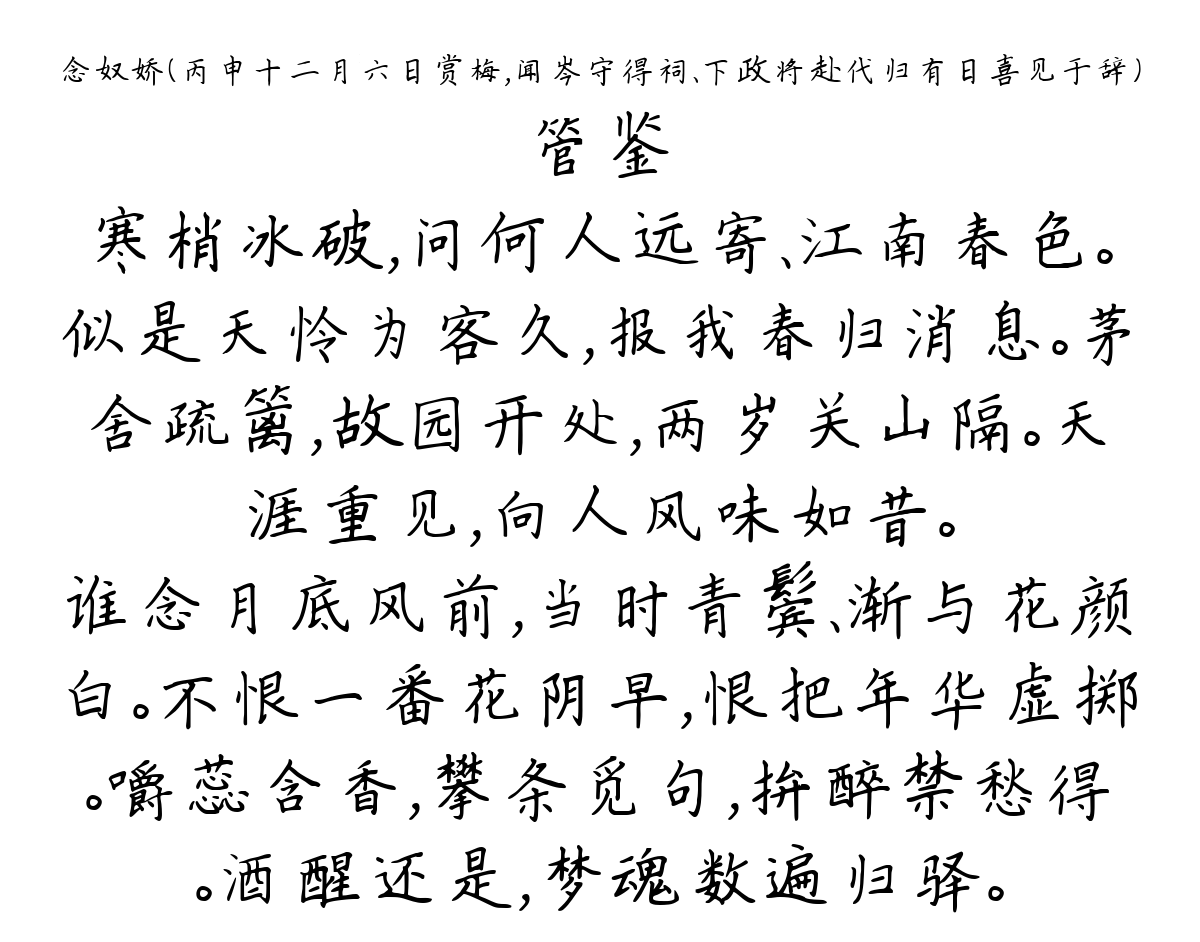 念奴娇(丙申十二月六日赏梅,闻岑守得祠、下政将赴代归有日喜见于辞)
管鉴
寒梢冰破,问何人远寄、江南春色。
似是天怜为客久,报我春归消息。茅
舍疏篱,故园开处,两岁关山隔。天
涯重见,向人风味如昔。
谁念月底风前,当时青鬓、渐与花颜
白。不恨一番花阴早,恨把年华虚掷
。嚼蕊含香,攀条觅句,拚醉禁愁得
。酒醒还是,梦魂数遍归驿。